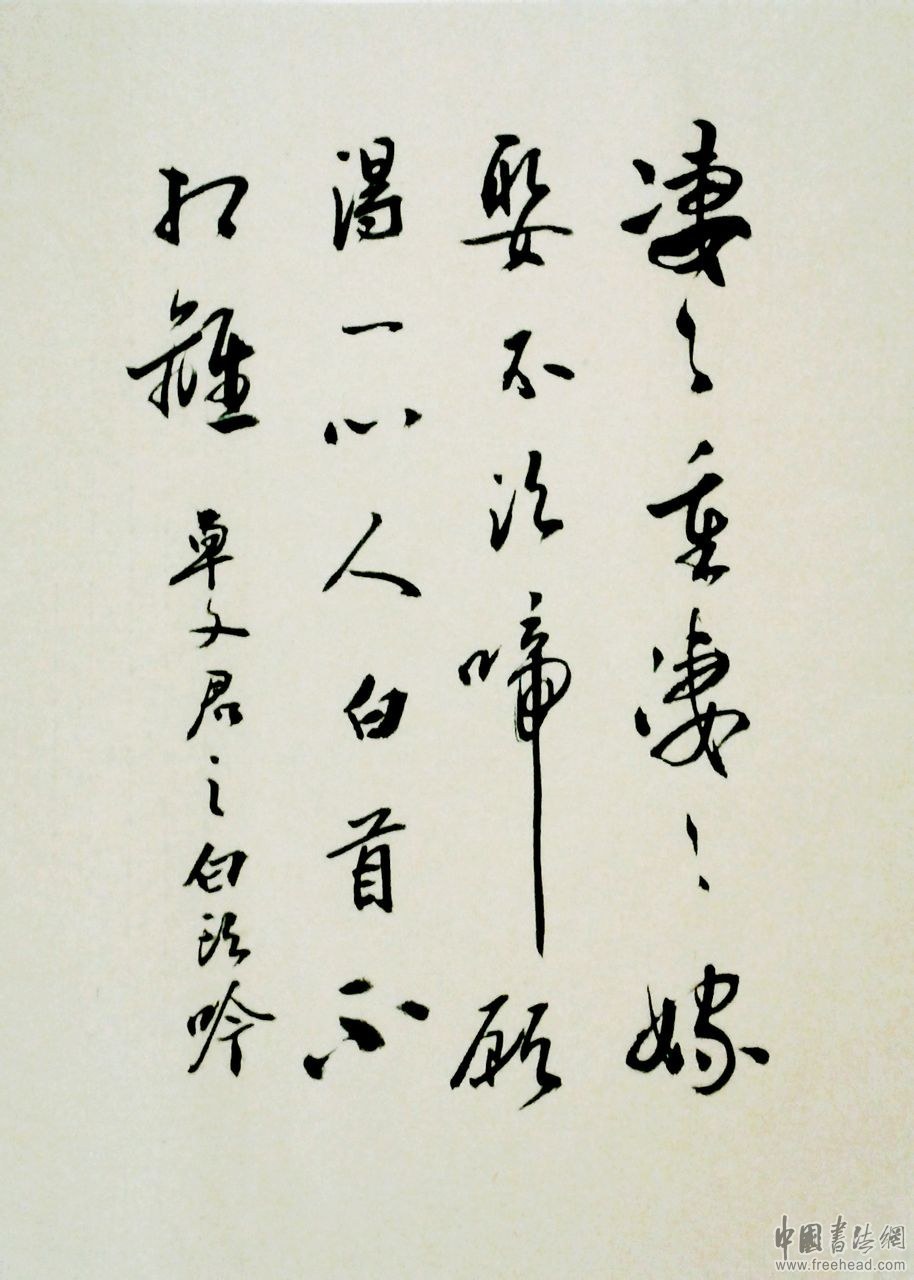 凄々重凄々嫁
娶不須啼願
得一心人白首不
相離
卓文君之白頭吟
中國書法網
www.freehead.com